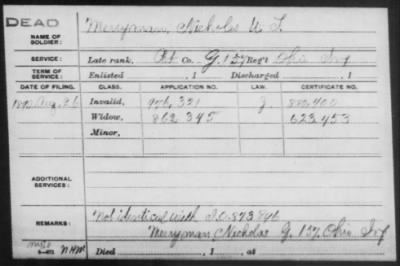 DEAD
NAME OF SOLDIER: Merryman, Nicholas W. T.
SERVICE: Late rank, Pvt Co. G, 127 Reg't Ohio Inf
TERM OF SERVICE: Enlisted , 1 Discharged , 1
DATE OF FILING. CLASS. APPLICATION NO. LAW. CERTIFICATE NO.
Aug. 26 Invalid, 976,331 J. 880,400
Widow, 862 345 623,453
Minor,
ADDITIONAL SERVICES:
REMARKS: Not identical with I.O. 873 846
Merryman, Nicholas G. 127, Ohio Inf
Died , 1 , at